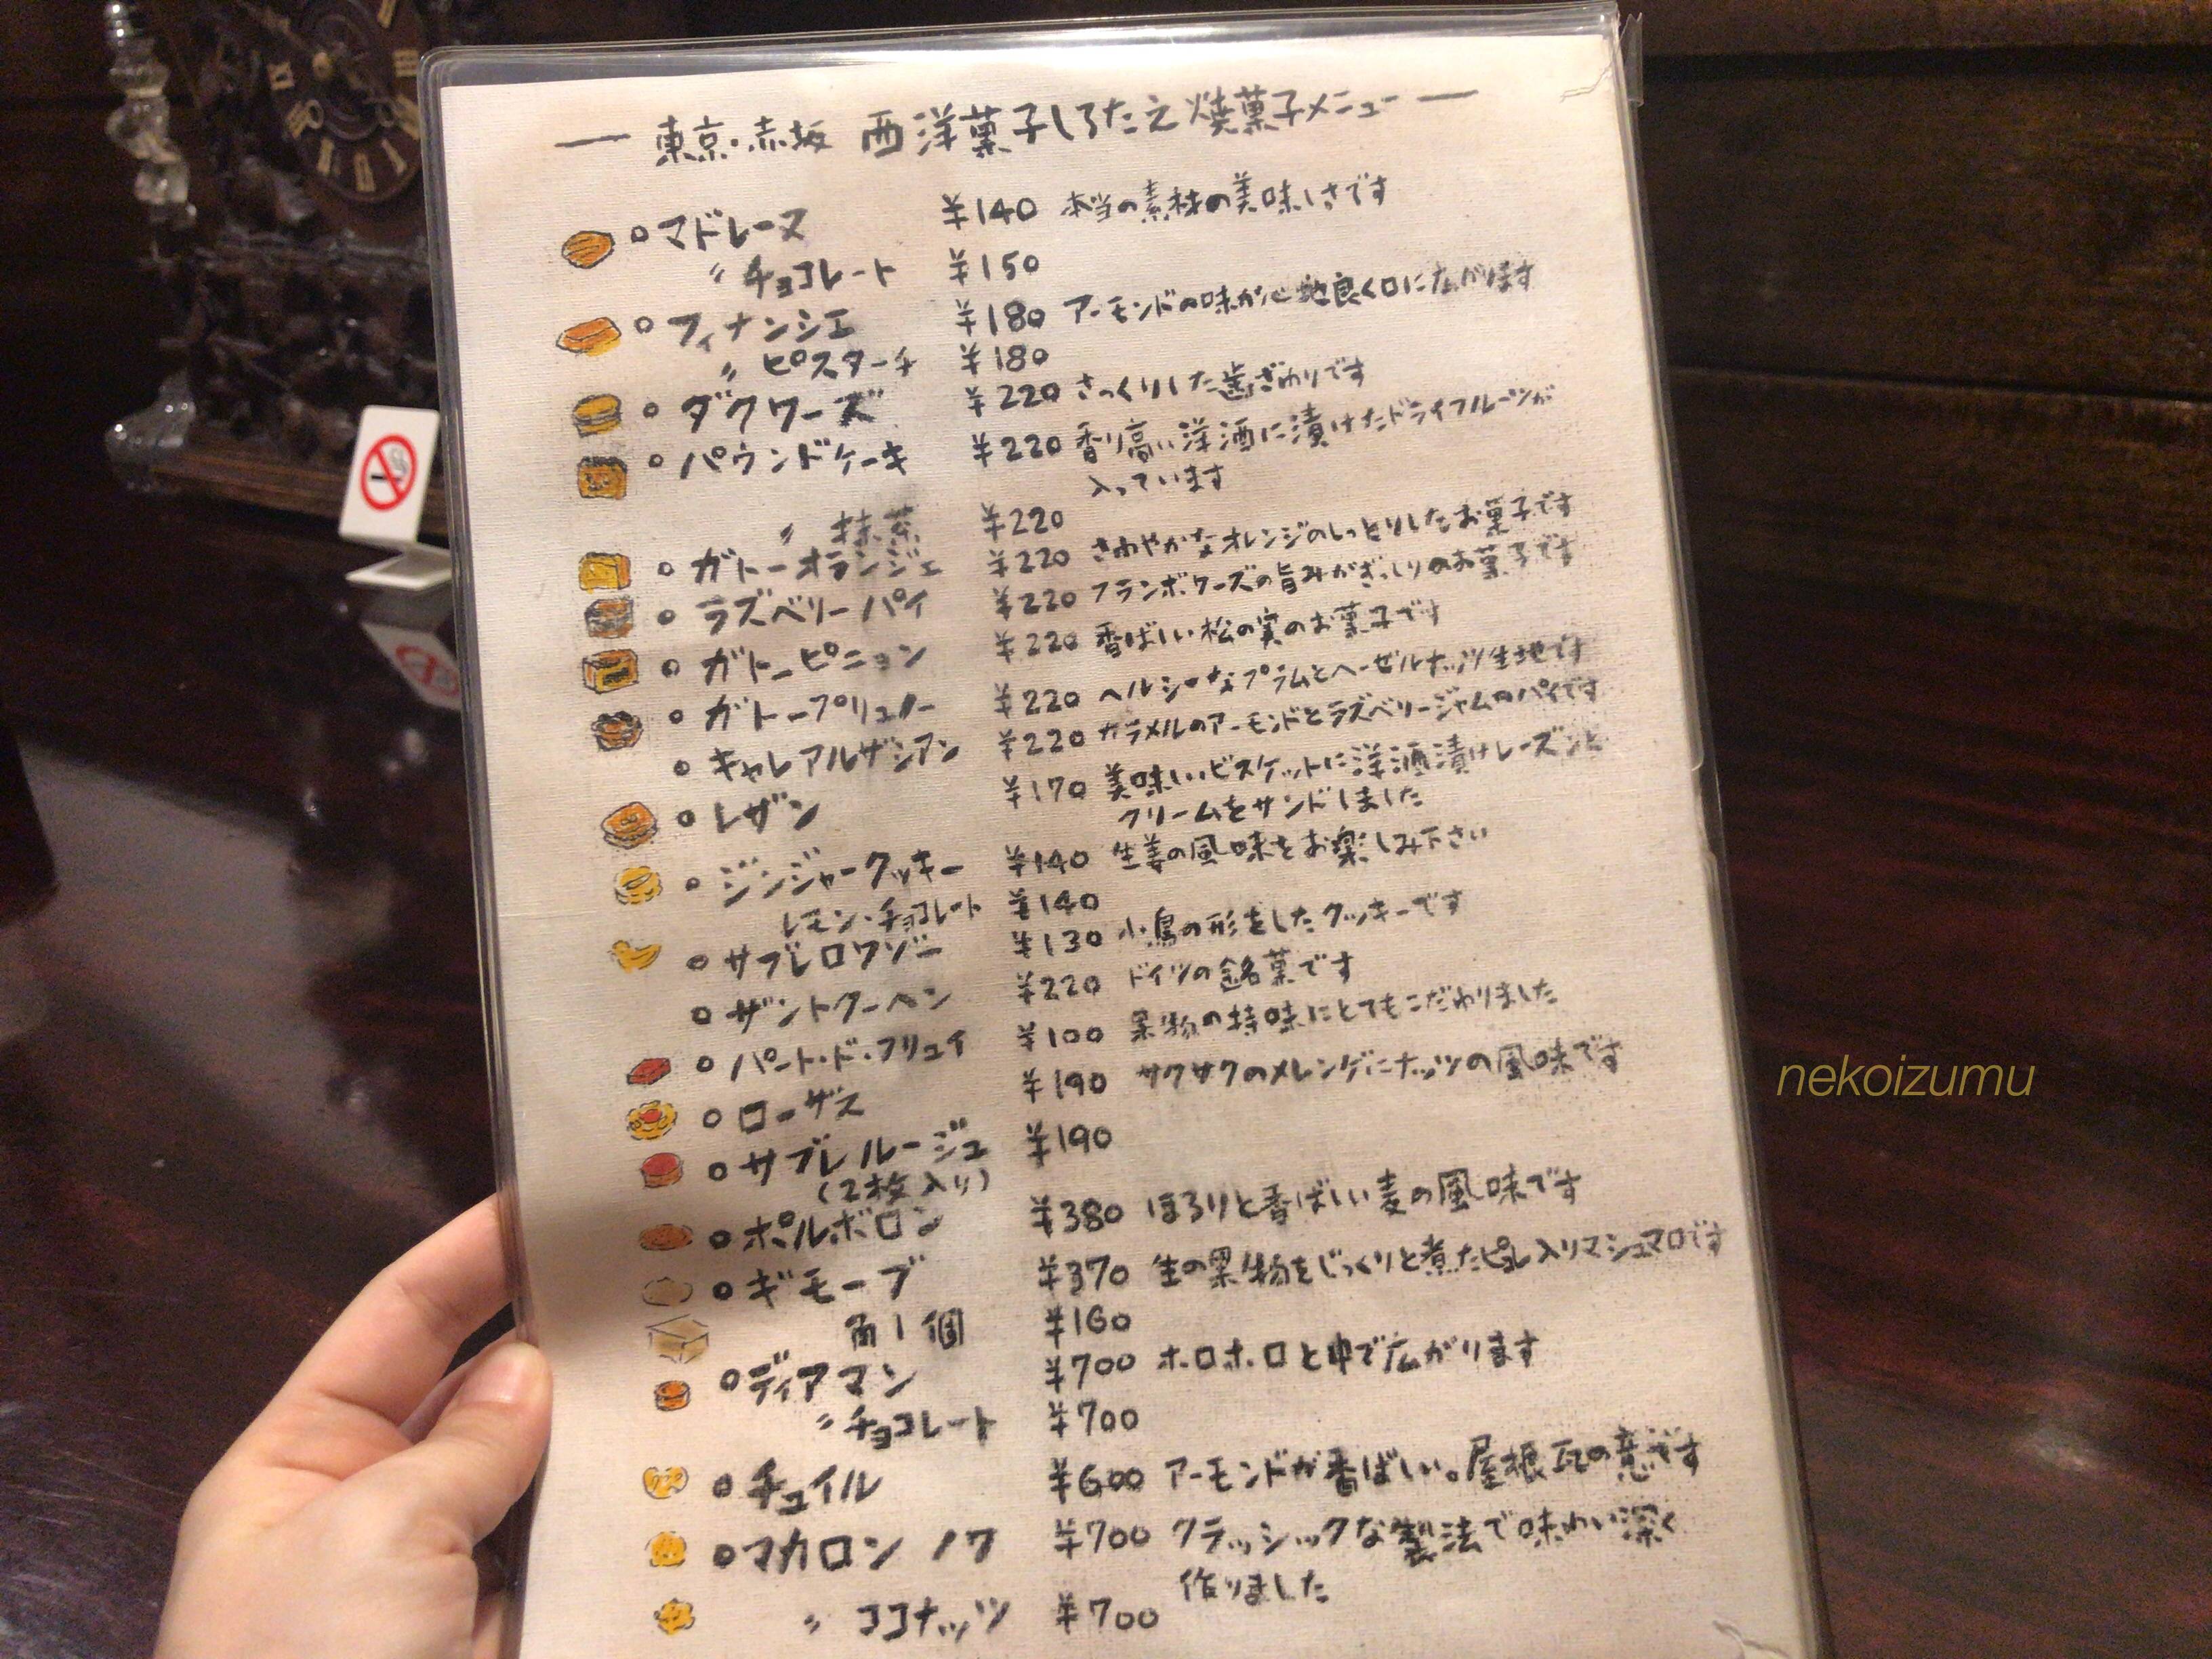 — 東京・赤坂 西洋菓子しろたえ 焼菓子メニュー —
○ マドレーヌ ¥140 本当の素材の美味しさです
〃 チョコレート ¥150
○ フィナンシェ ¥180 アーモンドの味が心地良く口に広がります
〃 ピスターチ ¥180
○ ダクワーズ ¥220 さっくりした歯ざわりです
○ パウンドケーキ ¥220 香り高い洋酒に漬けたドライフルーツが
入っています
〃 抹茶 ¥220
○ ガトーオランジェ ¥220 さわやかなオレンジのしっとりしたお菓子です
○ ラズベリーパイ ¥220 フランボワーズの旨みがぎっしりのお菓子です
○ ガトーピニョン ¥220 香ばしい松の実のお菓子です
○ ガトープリュノー ¥220 ヘルシーなプラムとヘーゼルナッツ生地です
○ キャレアルザシアン ¥220 カラメルのアーモンドとラズベリージャムのパイです
○ レザン ¥170 美味しいビスケットに洋酒漬けレーズンと
クリームをサンドしました
○ ジンジャークッキー ¥140 生姜の風味をお楽しみ下さい
レモン・チョコレート ¥140
○ サブレロワゾー ¥130 小鳥の形をしたクッキーです
○ ザントクーヘン ¥220 ドイツの銘菓です
○ パート・ド・フリュイ ¥100 果物の持味にとてもこだわりました
○ ローザス ¥190 サクサクのメレンゲにナッツの風味です
○ サブレルージュ ¥190
(2枚入り)
○ ポルボロン ¥380 ほろりと香ばしい麦の風味です
○ ギモーブ ¥370 生の果物をじっくりと煮たピュレ入りマシュマロです
角1個 ¥160
○ ディアマン ¥700 ホロホロと中で広がります
〃 チョコレート ¥700
○ チュイル ¥600 アーモンドが香ばしい。屋根瓦の意です
○ マカロン ノワ ¥700 クラッシックな製法で味わい深く
作りました
〃 ココナッツ ¥700
nekoizumu